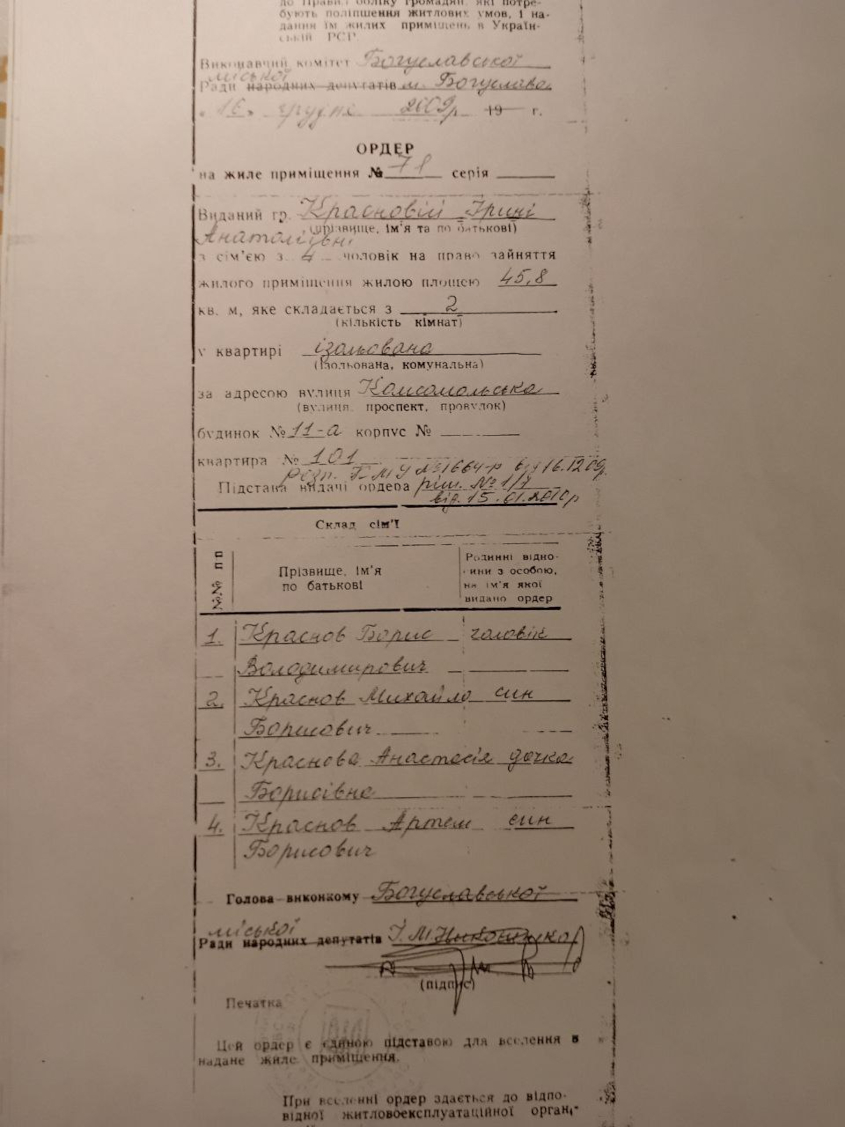 до Правил обліку громадян, які потре-
бують поліпшення житлових умов, і на-
дання їм жилих приміщень в Україн-
ській РСР
Виконавчий комітет Богуславської
міської
Ради народних депутатів м. Богуслава
„ 16 » грудня 2009р 19 г.
ОРДЕР
на жиле приміщення № 71 серія
Виданий гр. Красновій Ірині
(прізвище, ім'я та по батькові)
Анатоліївні
з сім'єю з 4 чоловік на право зайняття
жилого приміщення жилою площею 45,8
кв. м, яке складається з 2
(кількість кімнат)
у квартирі ізольована
(ізольована, комунальна)
за адресою вулиця Комсомольська
(вулиця, проспект, провулок)
будинок № 11-а корпус №
квартира № 101
розп. Б.М.У №1664-р від 16.12.09р.
Підстава видачі ордера ріш. № 1/7
від. 15.01.2010р
Склад сім'ї
№№ п п
Прізвище, ім'я
по батькові
Родинні відно-
сини з особою,
на ім'я якої
видано ордер
1. Краснов Борис чоловік
Володимирович
2. Краснов Михайло син
Борисович
3. Краснова Анастасія дочка
Борисівна
4. Краснов Артем син
Борисович
Голова виконкому Богуславської
міської
Ради народних депутатів
(підпис)
Печатка
Цей ордер є єдиною підставою для вселення в
надане жиле приміщення.
При вселенні ордер здається до відпо-
відної житловоексплуатаційної органі-